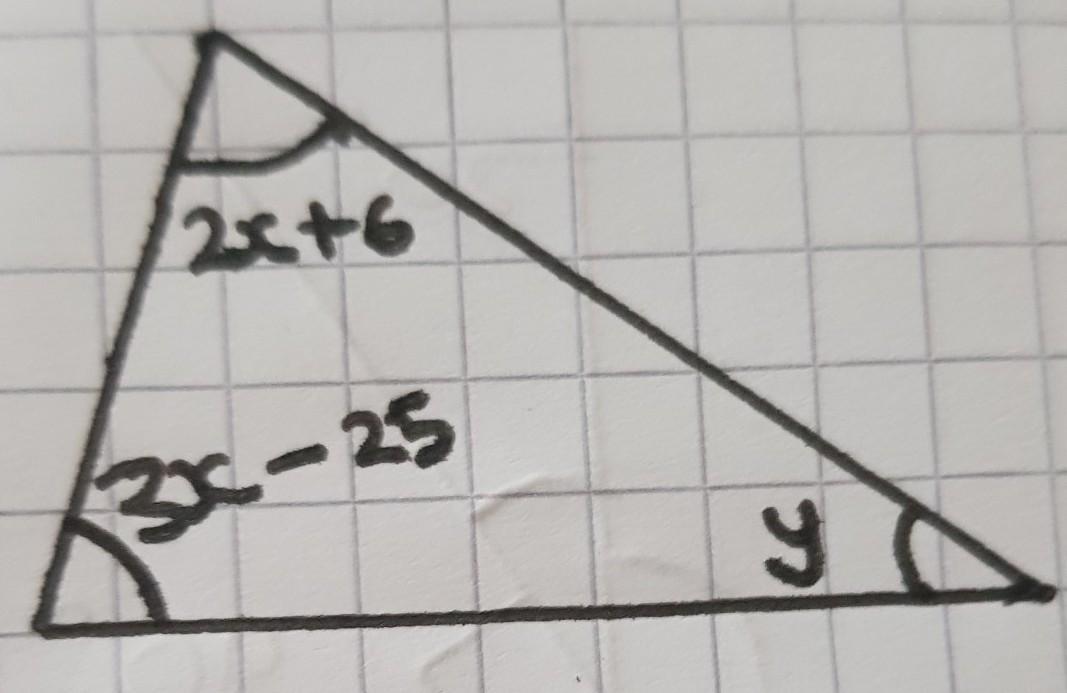 2x+6
3x-25
y